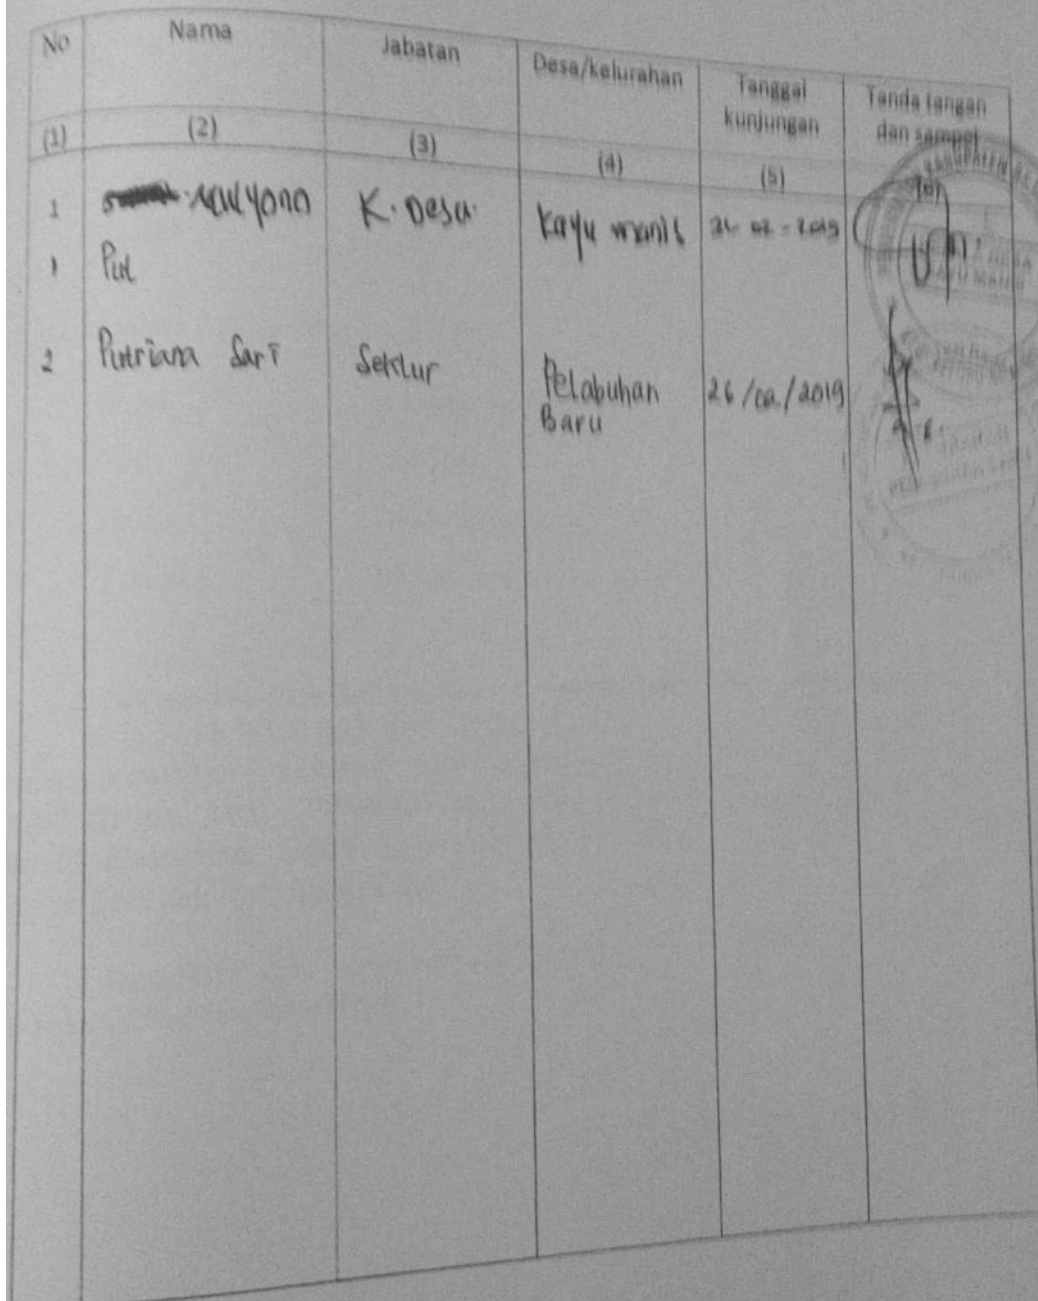 No Nama Jabatan Desa/kelurahan Tanggal kunjungan Tanda tangan dan sampel
(1) (2) (3) (4) (5) (6)
1 Mulyono K. Desa Kayu manis 26-02-2019
1 Put
2 Putriana Sari Seklur Pelabuhan Baru 26/02/2019